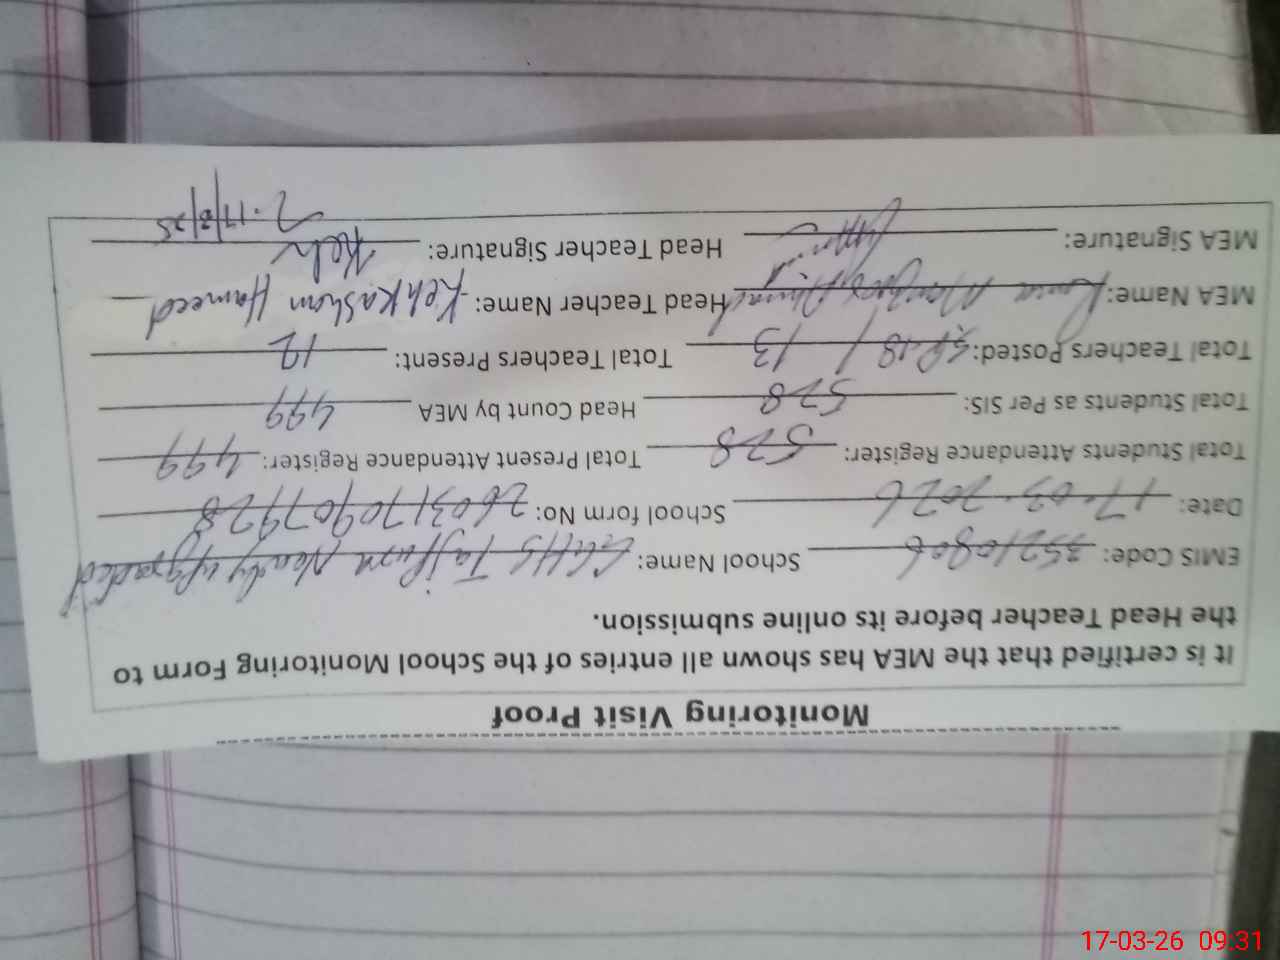 Monitoring Visit Proof
It is certified that the MEA has shown all entries of the School Monitoring Form to
the Head Teacher before its online submission.
EMIS Code: 35210806 School Name: GGHS Tajpura Newly upgraded
Date: 17-03-2026 School form No: 2603170907928
Total Students Attendance Register: 528 Total Present Attendance Register: 499
Total Students as Per SIS: 528 Head Count by MEA 499
Total Teachers Posted: 18 / 13 Total Teachers Present: 12
MEA Name: Rana Ahmad Head Teacher Name: Kehkashan Hameed
MEA Signature: Head Teacher Signature: Keh
17/3/25
17-03-26 09:31